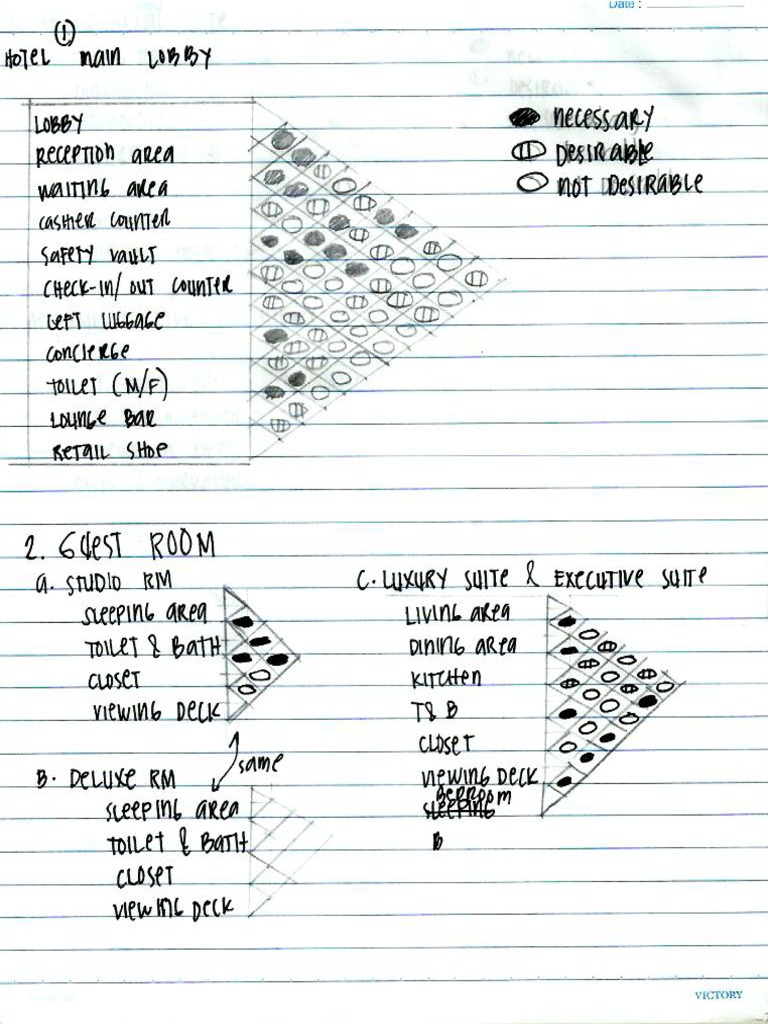 Date :
①
HOTEL MAIN LOBBY
LOBBY
RECEPTION AREA
WAITING AREA
CASHIER COUNTER
SAFETY VAULT
CHECK-IN/ OUT COUNTER
LEFT LUGGAGE
CONCIERGE
TOILET (M/F)
LOUNGE BAR
RETAIL SHOP
NECESSARY
DESIRABLE
NOT DESIRABLE
2. GUEST ROOM
A. STUDIO RM
SLEEPING AREA
TOILET & BATH
CLOSET
VIEWING DECK
same
B. DELUXE RM
SLEEPING AREA
TOILET & BATH
CLOSET
VIEWING DECK
C. LUXURY SUITE & EXECUTIVE SUITE
LIVING AREA
DINING AREA
KITCHEN
T& B
CLOSET
VIEWING DECK
BEDROOM
SLEEPING
B
VICTORY